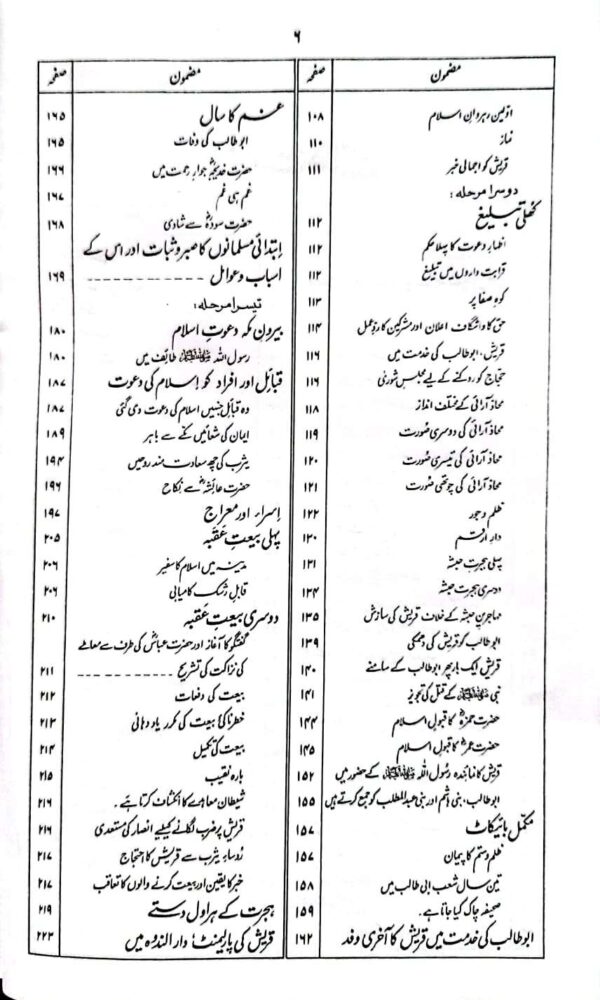 ۶
مضمون صفحہ
اوّلین رہروانِ اسلام ۱۰۸
نماز ۱۱۰
قریش کو اجمالی خبر ۱۱۱
دوسرا مرحلہ:
کھلی تبلیغ ۱۱۲
اظہارِ دعوت کا پہلا حکم ۱۱۲
قرابت داروں میں تبلیغ ۱۱۲
کوہِ صفا پر ۱۱۳
حق کا واشگاف اعلان اور مشرکین کا ردِّ عمل ۱۱۴
قریش، ابوطالب کی خدمت میں ۱۱۶
حجاج کو روکنے کے لیے مجلسِ شوریٰ ۱۱۶
محاذ آرائی کے مختلف انداز ۱۱۸
محاذ آرائی کی دوسری صورت ۱۱۹
محاذ آرائی کی تیسری صورت ۱۲۰
محاذ آرائی کی چوتھی صورت ۱۲۱
ظلم و جور ۱۲۲
دارِ ارقم ۱۳۰
پہلی ہجرتِ حبشہ ۱۳۱
دوسری ہجرتِ حبشہ ۱۳۴
مہاجرینِ حبشہ کے خلاف قریش کی سازش ۱۳۵
ابوطالب کو قریش کی دھمکی ۱۳۹
قریش ایک بار پھر ابوطالب کے سامنے ۱۴۰
نبی ﷺ کے قتل کی تجویز ۱۴۱
حضرت حمزہؓ کا قبولِ اسلام ۱۴۴
حضرت عمرؓ کا قبولِ اسلام ۱۴۵
قریش کا نمائندہ رسول اللہ ﷺ کے حضور میں ۱۵۲
ابوطالب، بنی ہاشم اور بنی عبدالمطلب کو جمع کرتے ہیں ۱۵۵
مکمل بائیکاٹ ۱۵۷
ظلم و ستم کا پیمان ۱۵۷
تین سال شعب ابی طالب میں ۱۵۸
صحیفہ چاک کیا جاتا ہے۔ ۱۵۹
ابوطالب کی خدمت میں قریش کا آخری وفد ۱۶۲
مضمون صفحہ
غم کا سال ۱۶۵
ابوطالب کی وفات ۱۶۵
حضرت خدیجہؓ جوارِ رحمت میں ۱۶۶
غم ہی غم ۱۶۷
حضرت سودہؓ سے شادی ۱۶۸
ابتدائی مسلمانوں کا صبر و ثبات اور اس کے
اسباب و عوامل ------------ ۱۶۹
تیسرا مرحلہ:
بیرونِ مکہ دعوتِ اسلام ۱۸۰
رسول اللہ ﷺ طائف میں ۱۸۰
قبائل اور افراد کو اسلام کی دعوت ۱۸۷
وہ قبائل جنہیں اسلام کی دعوت دی گئی ۱۸۷
ایمان کی شعاعیں مکے سے باہر ۱۸۹
یثرب کی چھ سعادت مند روحیں ۱۹۴
حضرت عائشہؓ سے نکاح ۱۹۶
اسراء اور معراج ۱۹۷
پہلی بیعتِ عقبہ ۲۰۵
مدینہ میں اسلام کا سفیر ۲۰۶
قابلِ رشک کامیابی ۲۰۶
دوسری بیعتِ عقبہ ۲۱۰
گفتگو کا آغاز اور حضرت عباسؓ کی طرف سے معاملے
کی نزاکت کی تشریح ------------ ۲۱۱
بیعت کی دفعات ۲۱۲
خطرناکیٔ بیعت کی مکرر یاد دہانی ۲۱۳
بیعت کی تکمیل ۲۱۴
بارہ نقیب ۲۱۵
شیطان معاہدے کا انکشاف کرتا ہے۔ ۲۱۶
قریش پر ضرب لگانے کیلئے انصار کی مستعدی ۲۱۶
رؤساءِ یثرب سے قریش کا احتجاج ۲۱۷
خبر کا یقین اور بیعت کرنے والوں کا تعاقب ۲۱۷
ہجرت کے ہراول دستے ۲۱۹
قریش کی پارلیمنٹ؛ دارالندوہ میں ۲۲۳